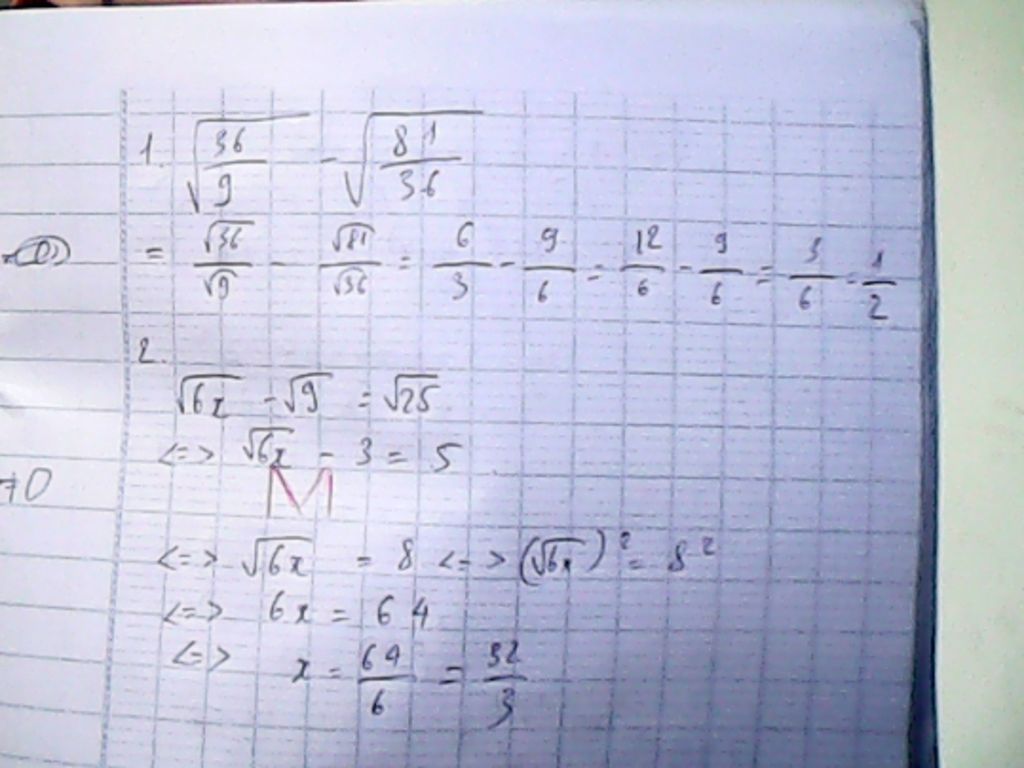 1. √(36/9) - √(81/36)
= √36/√9 - √81/√36 = 6/3 - 9/6 = 12/6 - 9/6 = 3/6 = 1/2
2.
√6x - √9 = √25
<=> √6x - 3 = 5
M
<=> √6x = 8 <=> (√6x)² = 8²
<=> 6x = 64
<=> x = 64/6 = 32/3